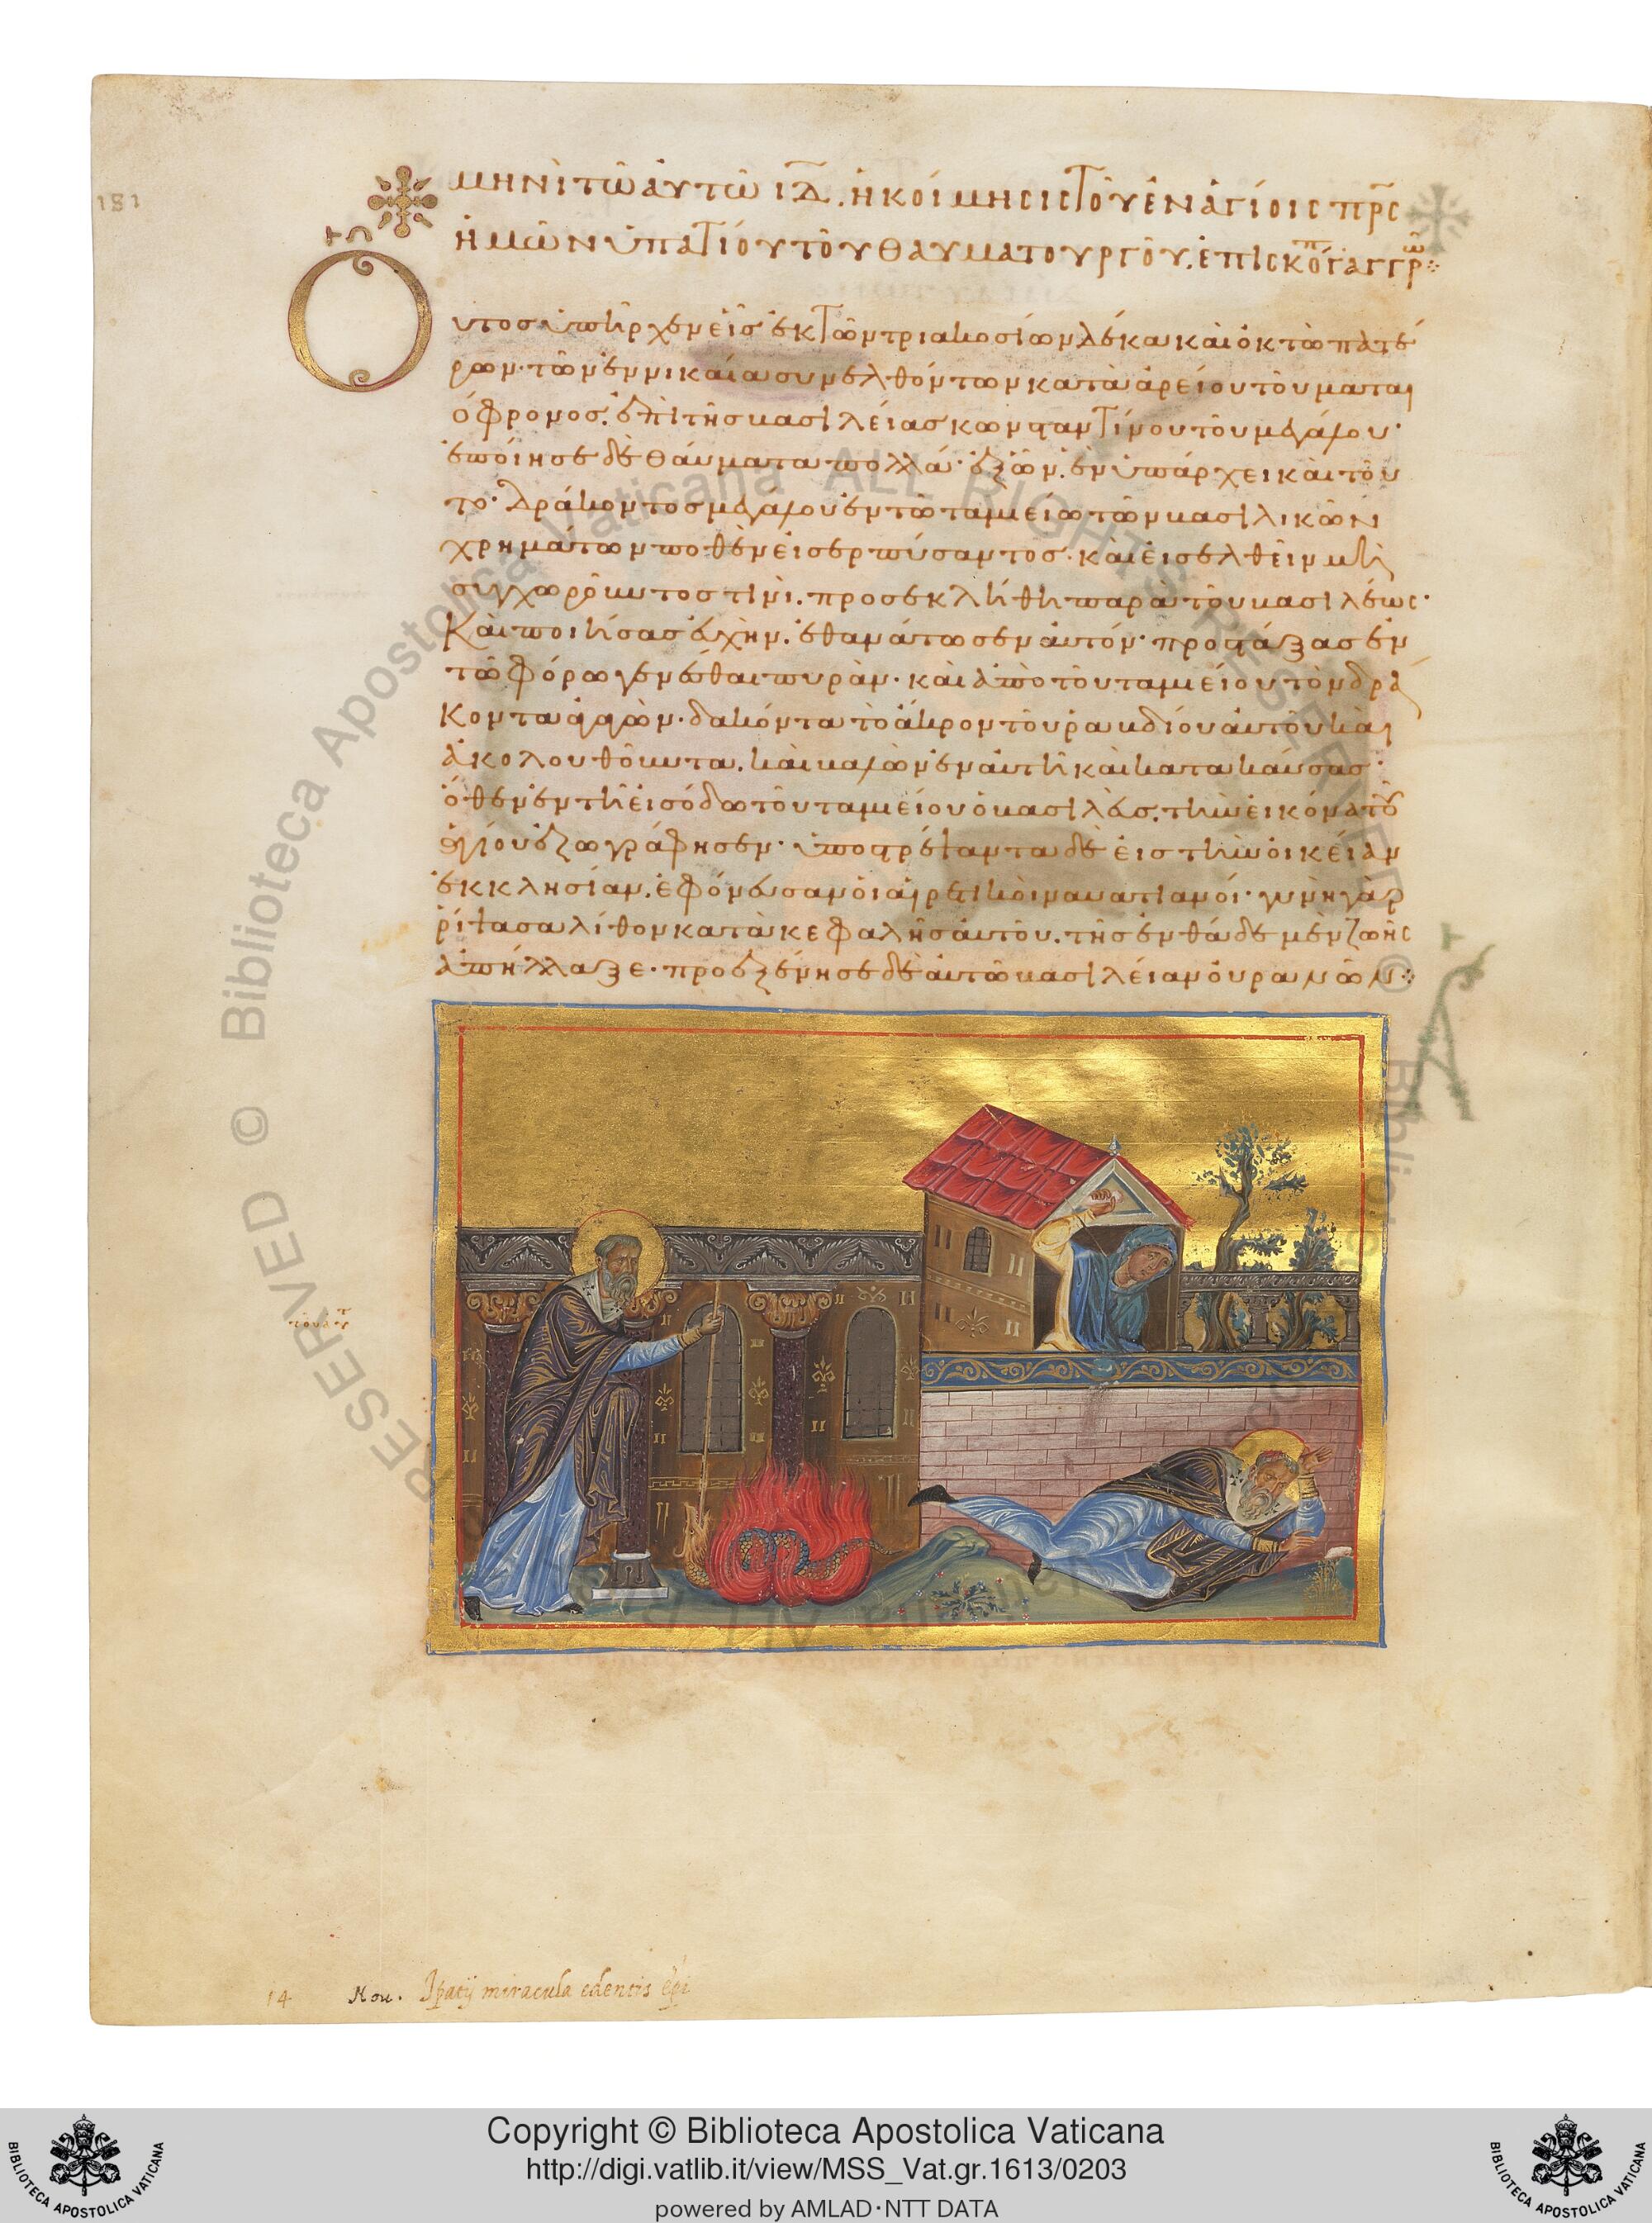 181
ΜΗΝῚ ΤΩ͂ ἈΥΤΩ͂ ΙΔ̅. Ἡ ΚΟΊΜΗCΙC ΤΟΥ͂ ἘΝ ἉΓΊΟΙC ΠΡ̅C
ἩΜΩ͂Ν ὙΠΑΤΊΟΥ ΤΟΥ͂ ΘΑΥΜΑΤΟΥΡΓΟΥ͂. ἘΠΙCΚΌΠ ΓΑΓΓΡῶ
Οὗτος ὑπῆρχεν εἷς ἐκ τῶν τριακοσίων δέκα καὶ ὀκτὼ πατέ
ρων· τῶν ἐν νικαία συνελθόντων κατὰ ἀρείου τοῦ μαται
όφρονος. ἐπὶ τῆς βασιλείας κωνσταντίνου τοῦ μεγάλου·
ἐποίησε δὲ θαύματα πολλά· ἐξ ὧν, ἓν ὑπάρχει καὶ τοῦ
το· δράκοντος μεγάλου ἐν τῶ ταμιείω τῶν βασιλικῶν
χρημάτων ποθὲν εἰσερπύσαντος· καὶ εἰσελθεῖν μὴ
συγχωροῦντος τινὶ. προσεκλήθη παρὰ τοῦ βασιλέως·
Καὶ ποιήσας εὐχὴν. ἐθανάτωσεν αὐτόν· προστάξας ἐν
τῶ φόρω γενέσθαι πυρὰν· καὶ ἀπὸ τοῦ ταμιείου τὸν δρά
κοντα σύρων· δακόντα τὸ ἄκρον τοῦ ῥαβδίου αὐτοῦ καὶ
ἀκολουθοῦντα. καὶ βαλὼν ἐν αὐτῆ καὶ κατακαύσας·
ὅθεν ἐν τῆ εἰσόδω τοῦ ταμιείου ὁ βασιλεὺς. τὴν εἰκόνα τοῦ
ἁγίου ἐζωγράφησεν· ὑποστρέψαντα δὲ εἰς τὴν οἰκείαν
ἐκκλησίαν. ἐφόνευσαν οἱ αἱρετικοὶ ναυατιανοί· γυνὴ γὰρ
ῥίψασα λίθον κατὰ κεφαλῆς αὐτοῦ. τῆς ἐνθάδε μὲν ζωῆς
ἀπήλλαξε· προεξένησε δὲ αὐτῶ βασιλείαν οὐρανῶν
14 Nou. Ipatij miracula edentis epi
© Biblioteca Apostolica Vaticana ALL RIGHTS RESERVED
Copyright © Biblioteca Apostolica Vaticana
http://digi.vatlib.it/view/MSS_Vat.gr.1613/0203
powered by AMLAD·NTT DATA
BIBLIOTECA APOSTOLICA VATICANA
BIBLIOTECA APOSTOLICA VATICANA